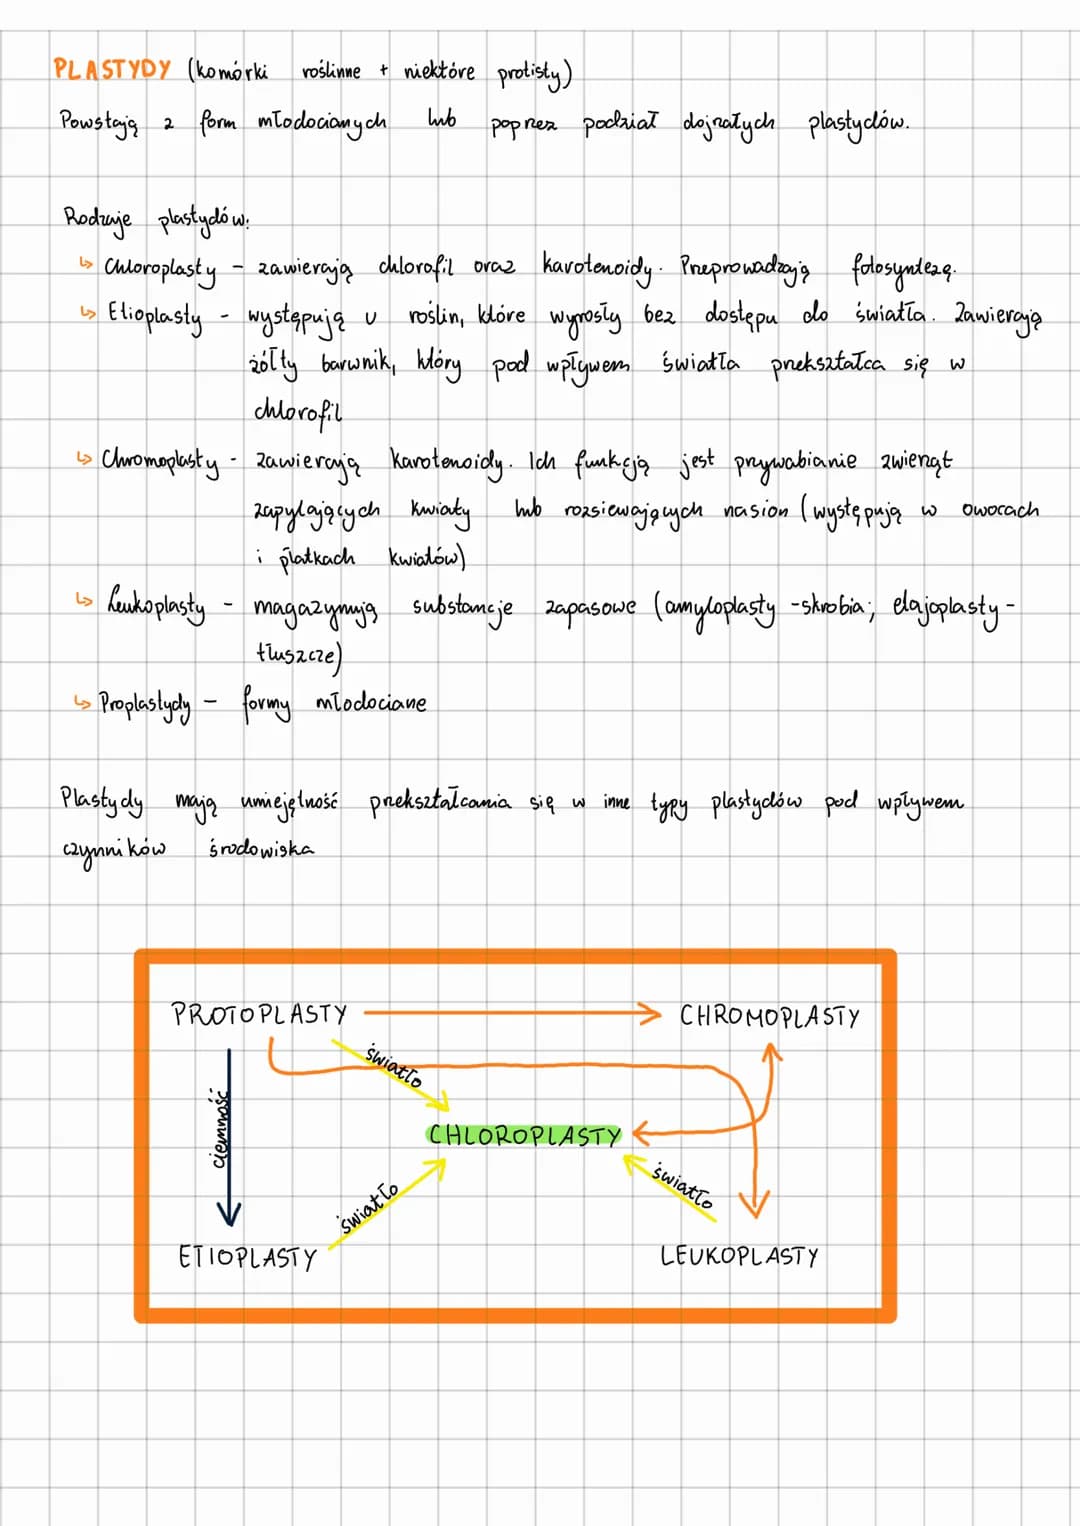 PLASTYDY (komórki roślinne + niektóre protisty)
Powstają z form młodocianych lub poprzez podział dojrzałych plastydów.
Rodzaje plastydów:
↳ Chloroplasty - zawierają chlorofil oraz karotenoidy. Przeprowadzają fotosyntezę.
↳ Etioplasty - występują u roślin, które wyrosły bez dostępu do światła. Zawierają
żółty barwnik, który pod wpływem światła przekształca się w
chlorofil
↳ Chromoplasty - zawierają karotenoidy. Ich funkcją jest przywabianie zwierząt
zapylających kwiaty lub rozsiewających nasion (występują w owocach
i płatkach kwiatów)
↳ Leukoplasty - magazynują substancje zapasowe (amyloplasty - skrobia; elajoplasty -
tłuszcze)
↳ Proplastydy - formy młodociane
Plastydy mają umiejętność przekształcania się w inne typy plastydów pod wpływem
czynników środowiska
PROTOPLASTY
CHROMOPLASTY
światło
ciemność
CHLOROPLASTY
światło
światło
ETIOPLASTY
LEUKOPLASTY